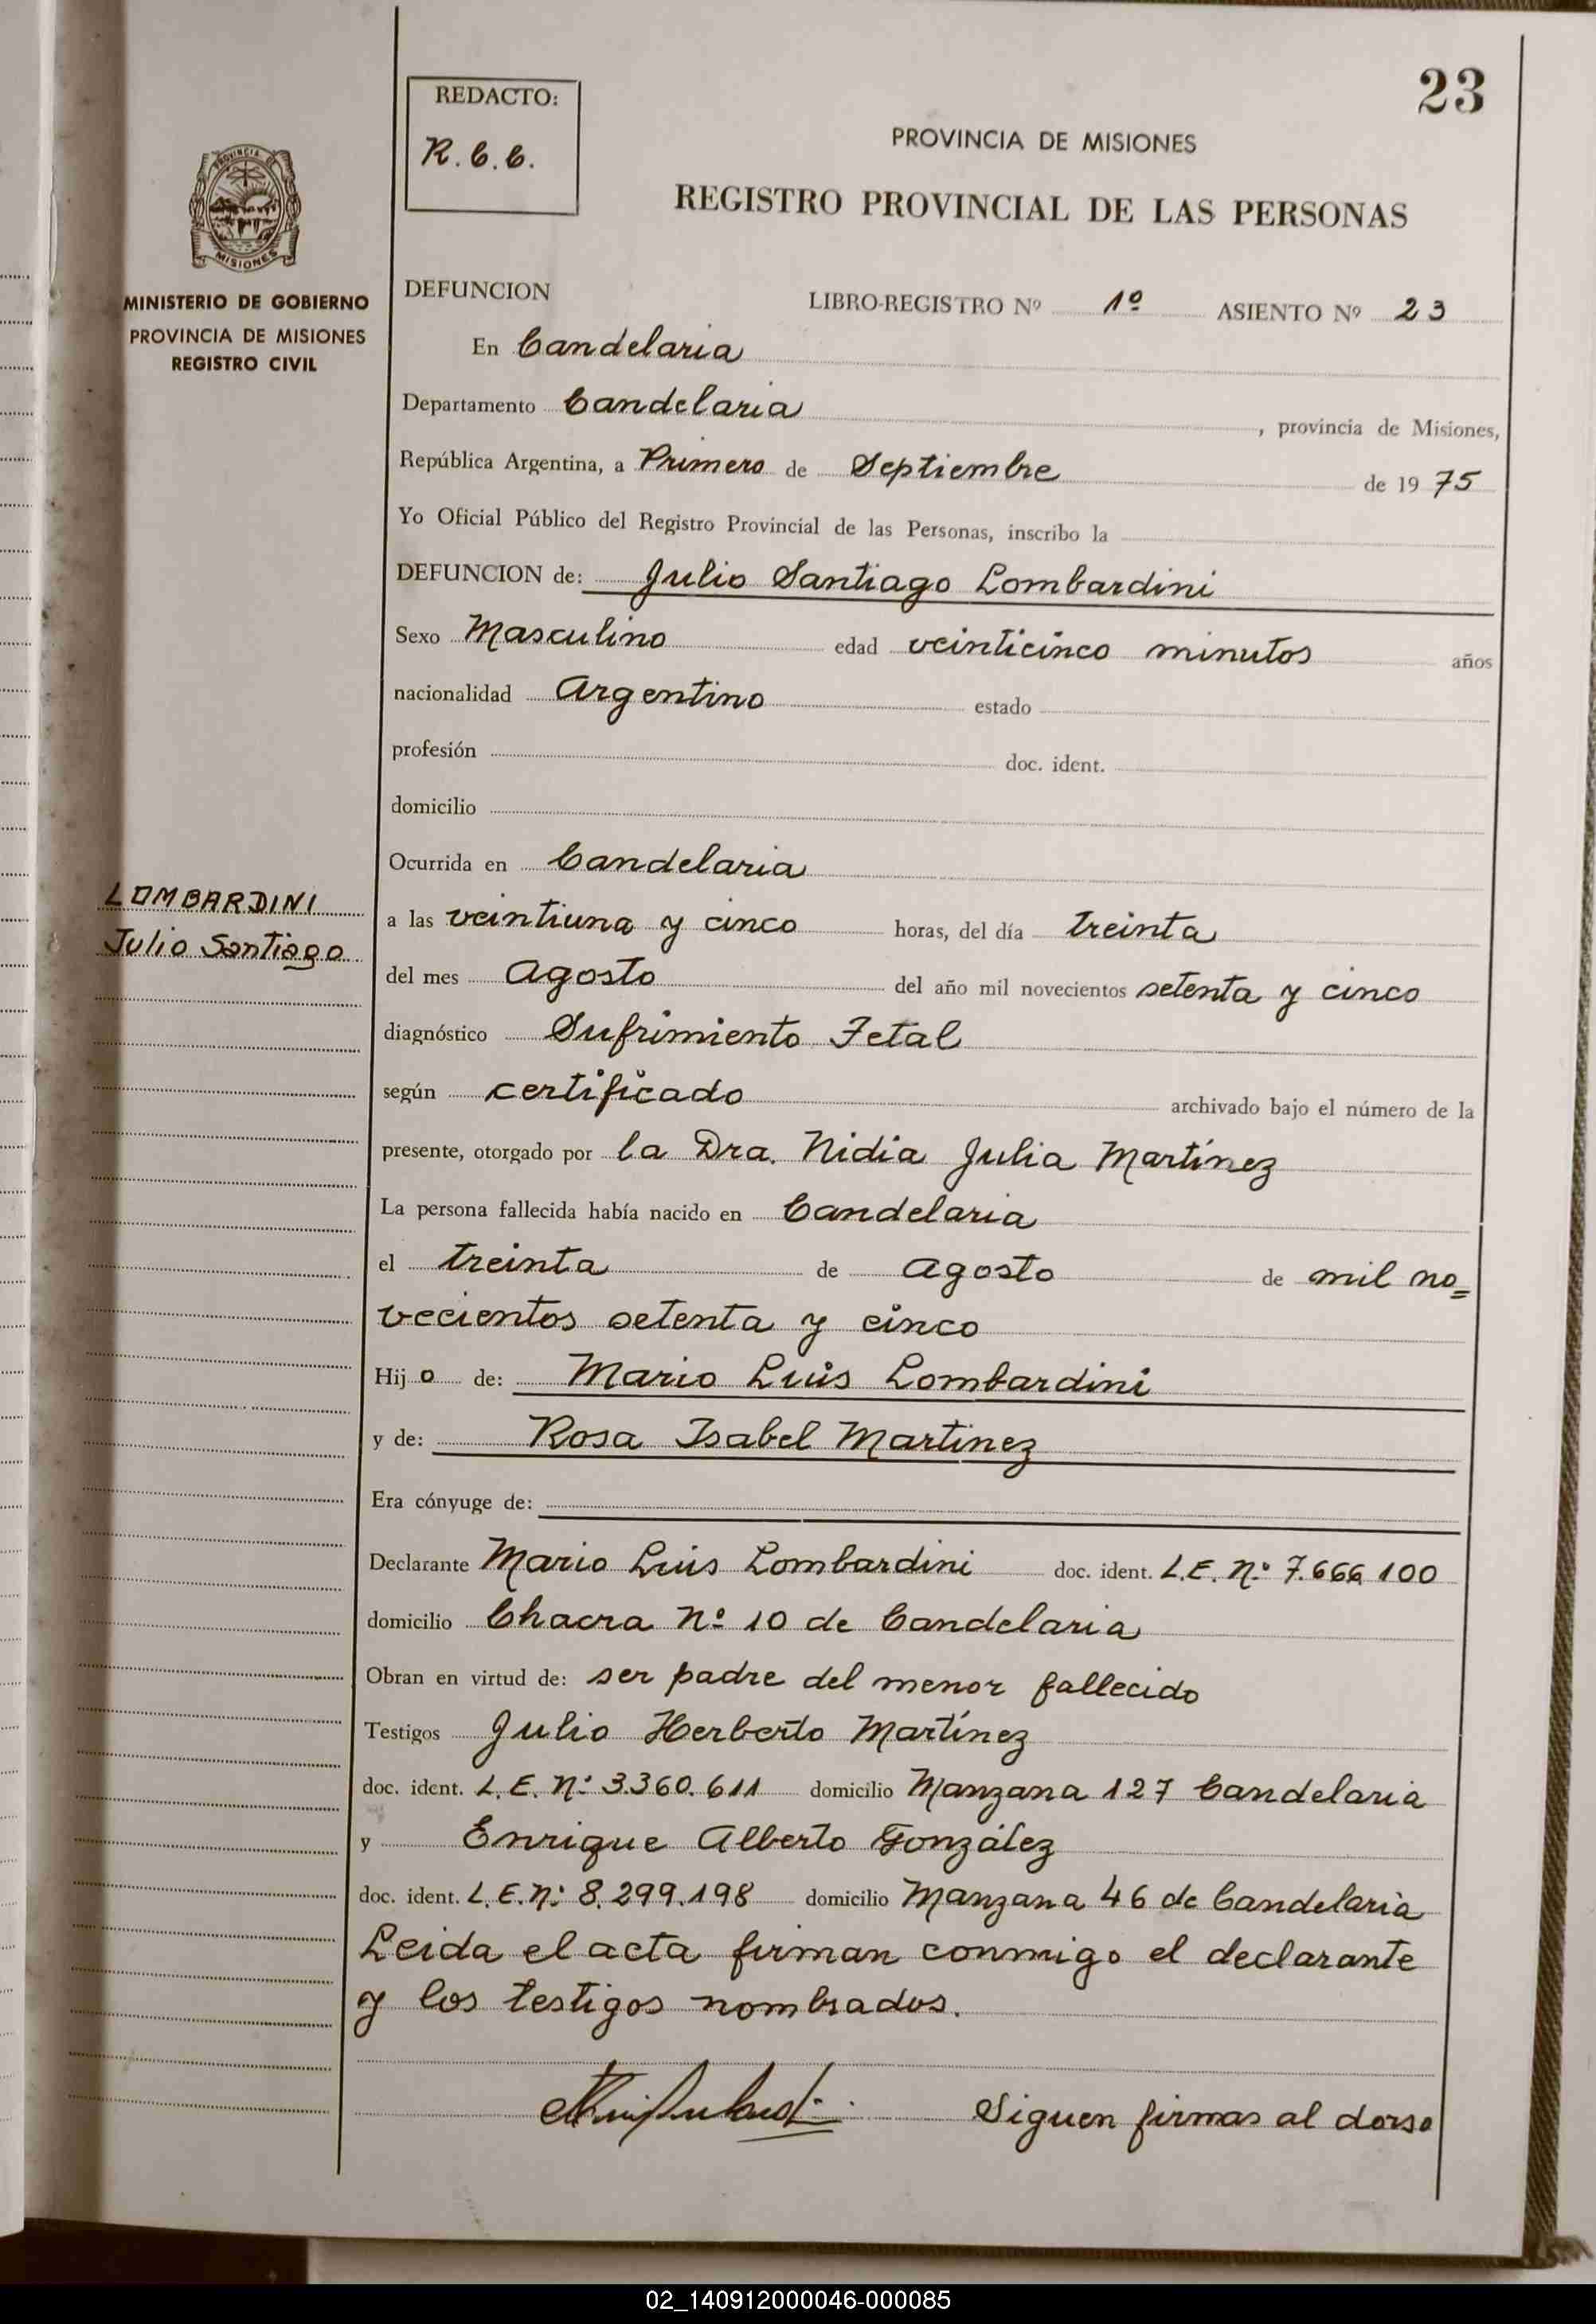 23
REDACTO:
R.C.C.
PROVINCIA DE MISIONES
REGISTRO PROVINCIAL DE LAS PERSONAS
PROVINCIA DE
MISIONES
MINISTERIO DE GOBIERNO
PROVINCIA DE MISIONES
REGISTRO CIVIL
DEFUNCION LIBRO-REGISTRO Nº 1º ASIENTO Nº 23
En Candelaria
Departamento Candelaria, provincia de Misiones,
República Argentina, a Primero de Septiembre de 1975
Yo Oficial Público del Registro Provincial de las Personas, inscribo la
DEFUNCION de: Julio Santiago Lombardini
Sexo Masculino edad veinticinco minutos años
nacionalidad Argentino estado
profesión doc. ident.
domicilio
Ocurrida en Candelaria
LOMBARDINI
Julio Santiago
a las veintiuna y cinco horas, del día treinta
del mes Agosto del año mil novecientos setenta y cinco
diagnóstico Sufrimiento Fetal
según certificado archivado bajo el número de la
presente, otorgado por la Dra. Nidia Julia Martínez
La persona fallecida había nacido en Candelaria
el treinta de Agosto de mil no=
vecientos setenta y cinco
Hijo de: Mario Luis Lombardini
y de: Rosa Isabel Martinez
Era cónyuge de:
Declarante Mario Luis Lombardini doc. ident. L.E. Nº 7.666.100
domicilio Chacra Nº 10 de Candelaria
Obran en virtud de: ser padre del menor fallecido
Testigos Julio Herberto Martínez
doc. ident. L.E. Nº 3.360.611 domicilio Manzana 127 Candelaria
y Enrique Alberto González
doc. ident. L.E. Nº 8.299.198 domicilio Manzana 46 de Candelaria
Leida el acta firman conmigo el declarante
y los testigos nombrados.
Siguen firmas al dorso
02_140912000046-000085